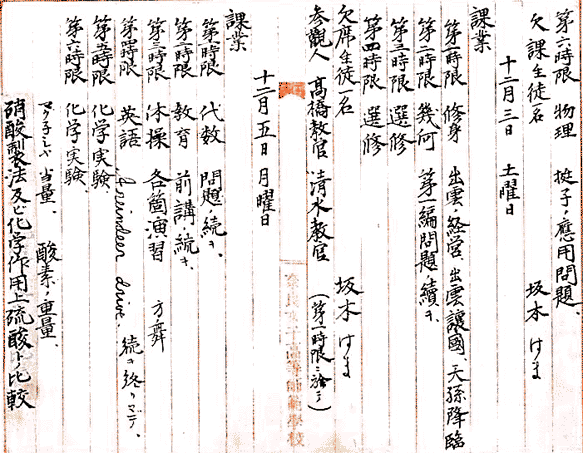 第六時限 物理 挺子ノ應用問題、
欠課生徒一名 坂木 けま
十二月三日 土曜日
課業
第一時限 修身 出雲ノ経営、出雲讓國、天孫降臨
第二時限 幾何 第一編問題ノ續キ、
第三時限 選修
第四時限 選修
欠席生徒一名 坂木 けま
参觀人 髙橋教官 清水教官 (第一時限ニ於テ)
十二月五日 月曜日
課業
第一時限 代数 問題ノ続キ、
第二時限 教育 前講ノ続キ、
第三時限 体操 各箇演習 方舞
第四時限 英語 A reindeer drive. 続キ終リマデ、
第五時限 化学実験、
第六時限 化学実験、
マグネシヤ当量、 酸素ノ重量、
硝酸製法及ビ化学作用上硫酸トノ比較
奈良女子高等師範學校